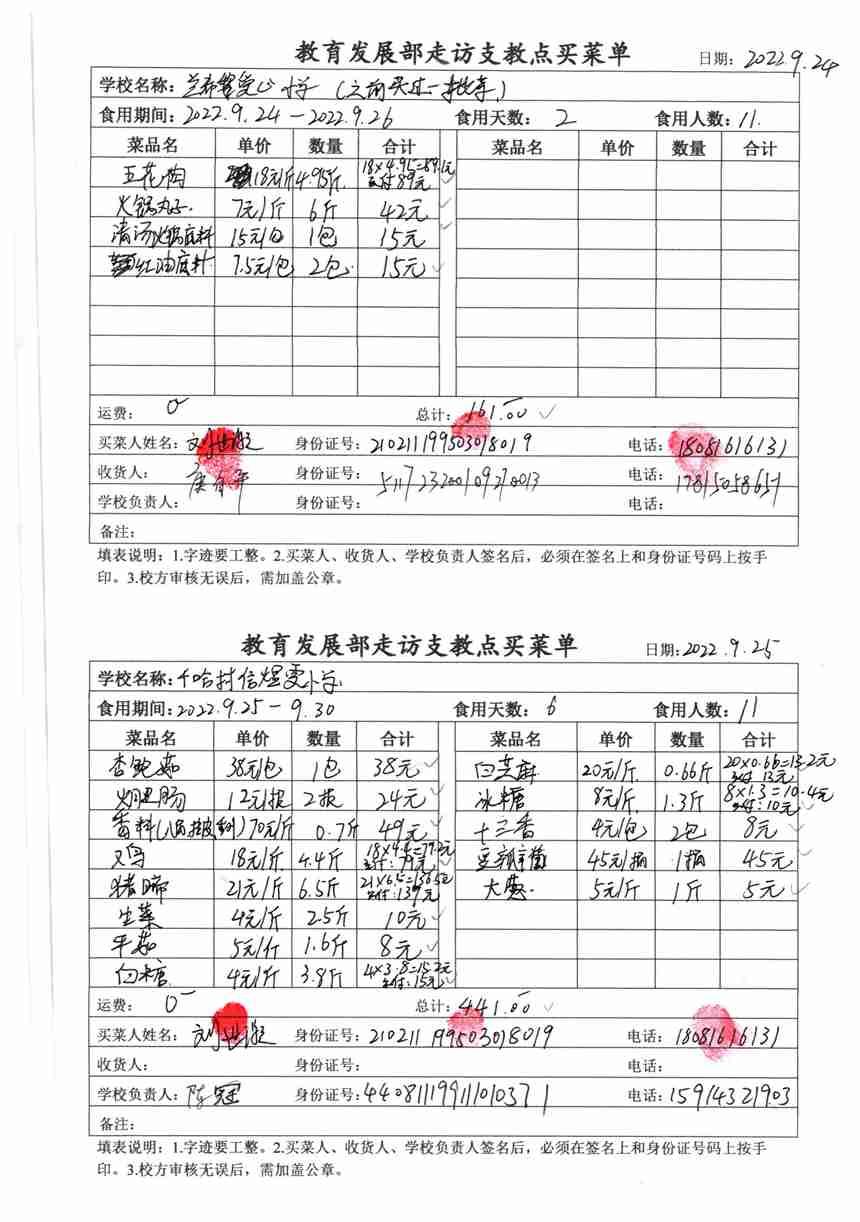 教育发展部走访支教点买菜单
日期: 2022.9.24
学校名称: 爱心小学 (之前买过一批菜)
食用期间: 2022.9.24 — 2022.9.26 食用天数: 2 食用人数: 11.
菜品名 单价 数量 合计 菜品名 单价 数量 合计
五花肉 18元/斤 4.95斤. 18×4.95=89.1元 实付89元
火锅丸子. 7元/斤 6斤 42元
清汤火锅底料 15元/包 1包 15元
红油底料 7.5元/包 2包. 15元
运费: 0 总计: 161.00
买菜人姓名: 身份证号: 210211199503018019 电话: 18081616131
收货人: 身份证号: 511723200109270013 电话: 17815058657
学校负责人: 身份证号: 电话:
备注:
填表说明: 1.字迹要工整。2.买菜人、收货人、学校负责人签名后,必须在签名上和身份证号码上按手
印。3.校方审核无误后,需加盖公章。
教育发展部走访支教点买菜单
日期: 2022.9.25
学校名称: 千哈村信煜雯小学
食用期间: 2022.9.25 — 9.30 食用天数: 6 食用人数: 11
菜品名 单价 数量 合计 菜品名 单价 数量 合计
杏鲍菇 38元/包 1包 38元 白芝麻 20元/斤. 0.66斤 20×0.66=13.2元 实付 13元
火腿肠 12元/提 2提 24元 冰糖 8元/斤. 1.3斤 8×1.3=10.4元 实付:10元
香料 70元/斤 0.7斤 49元 十三香 4元/包 2包 8元
又鸟 18元/斤. 4.4斤 实付: 79元 豆瓣酱 45元/桶 1桶 45元
猪蹄 21元/斤 6.5斤 21×6.5=136.5元 大葱. 5元/斤 1斤 5元
生菜 4元/斤 2.5斤 10元
平菇 5元/斤 1.6斤 8元
白糖. 4元/斤 3.8斤 4×3.8=15.2元 实付:15元
运费: 0 总计: 441.00
买菜人姓名: 身份证号: 210211199503018019 电话: 18081616131
收货人: 身份证号: 电话:
学校负责人: 陈冠 身份证号: 440811199111010371 电话: 15914321903
备注:
填表说明: 1.字迹要工整。2.买菜人、收货人、学校负责人签名后,必须在签名上和身份证号码上按手
印。3.校方审核无误后,需加盖公章。